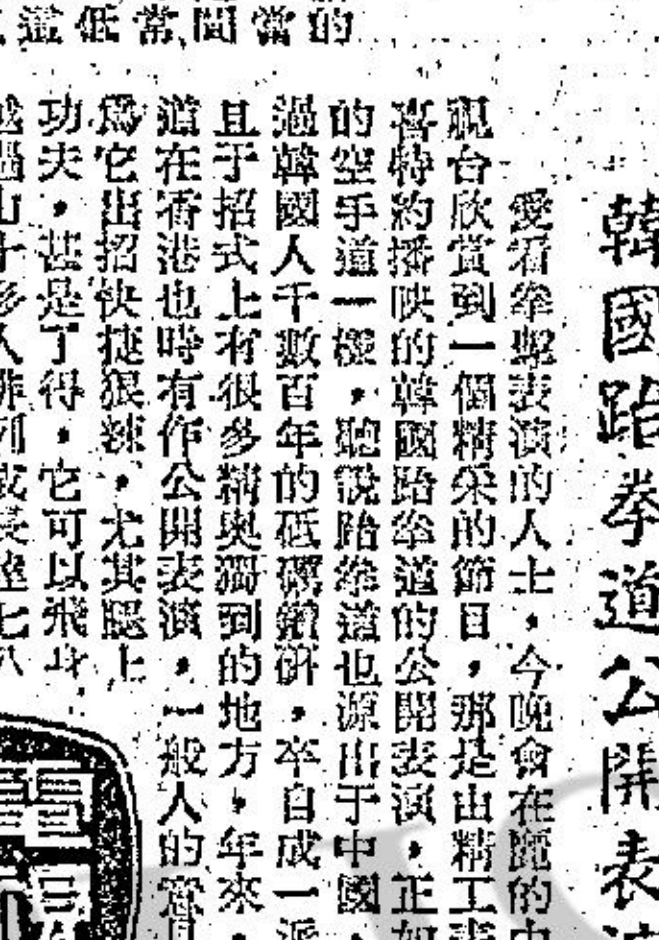 韓國跆拳道公開表
愛看拳擊表演的人士，今晚會在麗的中
視台欣賞到一個精采的節目，那是由精工表
喜特約播映的韓國跆拳道的公開表演，正如
的空手道一樣，聽說跆拳道也源出于中國，
過韓國人千數百年的砥礪鑽研，卒自成一派
且于招式上有很多精奧獨到的地方，年來，
道在香港也時有作公開表演，一般人的
爲它出招快捷狠辣，尤其腿上
功夫，甚是了得，它可以飛身
越過山十多人排列成長達七八
道低常間當的